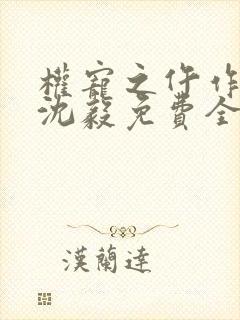 權寵之仵作
沈毅免費全
漢蘭達